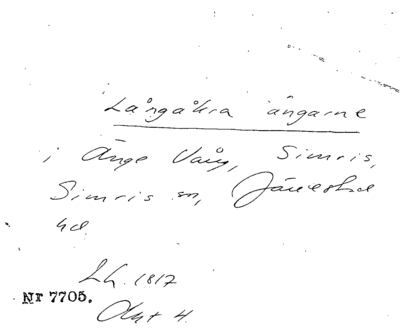 Långåkra ängarne
i Änge Vång, Simris,
Simris sn, Järrestad
hd
Lh. 1817
Nr 7705.
Akt 4.